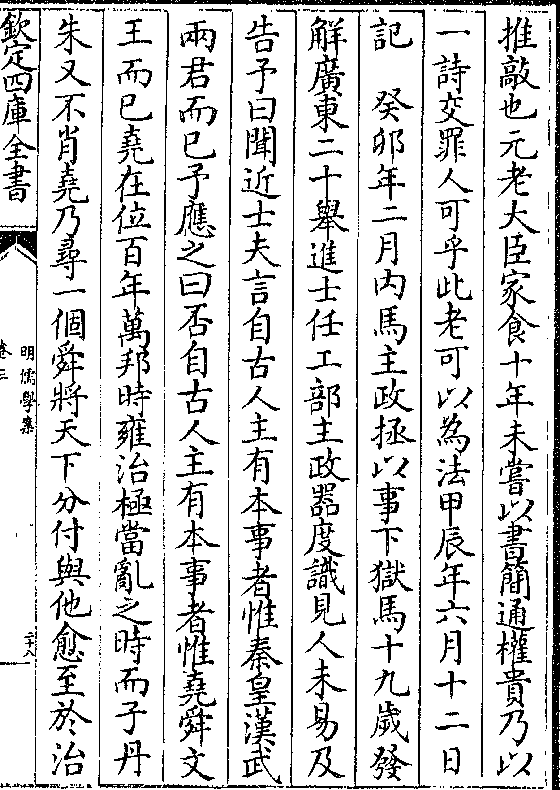 推敲也元老大臣家食十年未嘗以書簡通權貴乃以
一詩交罪人可乎此老可以為法甲辰年六月十二日
記　癸卯年二月内馬主政拯以事下獄馬十九歲發
解廣東二十舉進士任工部主政器度識見人未易及
告予曰聞近士夫言自古人主有本事者惟秦皇漢武
兩君而已予應之曰否自古人主有本事者惟堯舜文
王而已堯在位百年萬邦時雍治極當亂之時而子丹
朱又不肖堯乃尋一個舜將天下分付與他愈至於治
欽定四庫全書
明儒學案
卷三
二十八